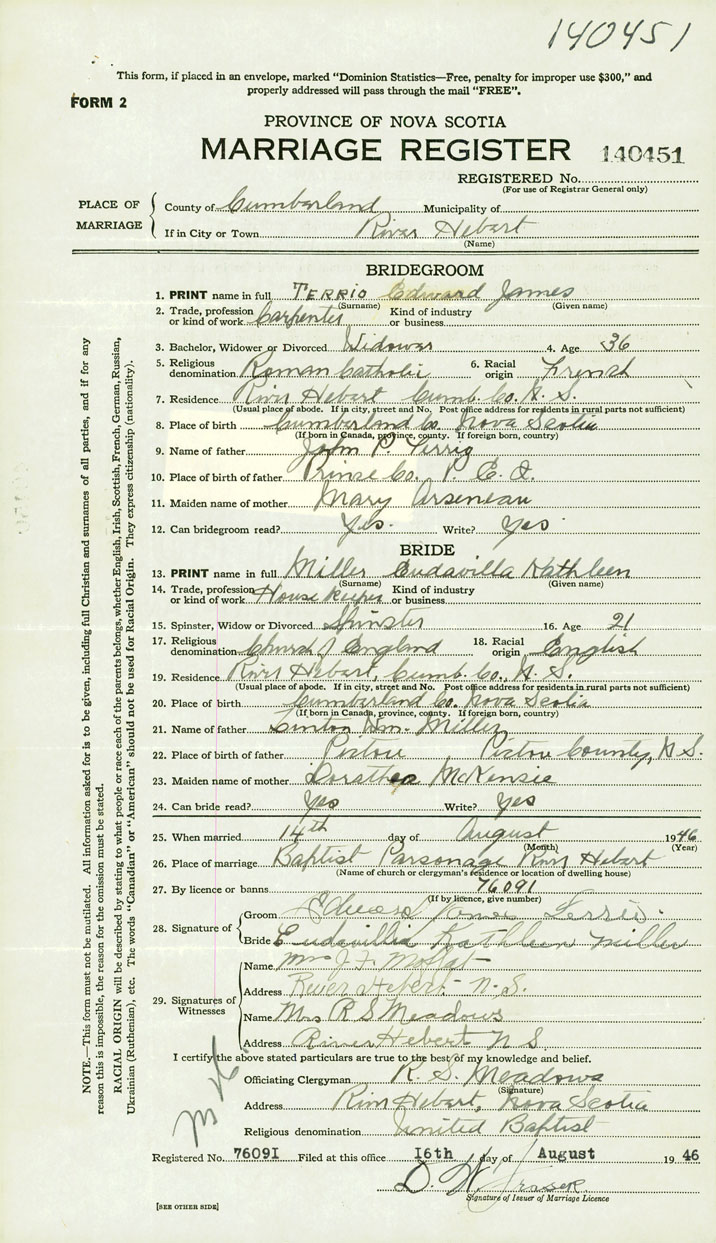 140451
This form, if placed in an envelope, marked "Dominion Statistics—Free, penalty for improper use $300," and
properly addressed will pass through the mail "FREE".
FORM 2
PROVINCE OF NOVA SCOTIA
MARRIAGE REGISTER 140451
REGISTERED No.
(For use of Registrar General only)
PLACE OF MARRIAGE
County of Cumberland Municipality of
If in City or Town River Hebert
(Name)
BRIDEGROOM
1. PRINT name in full TERRIO Edward James
(Surname) (Given name)
2. Trade, profession or kind of work Carpenter Kind of industry or business
3. Bachelor, Widower or Divorced Widower 4. Age 36
5. Religious denomination Roman Catholic 6. Racial origin French
7. Residence River Hebert Cumb. Co. N. S.
(Usual place of abode. If in city, street and No. Post office address for residents in rural parts not sufficient)
8. Place of birth Cumberland Co. Nova Scotia
(If born in Canada, province, county. If foreign born, country)
9. Name of father John P. Terrio
10. Place of birth of father Prince Co. P. E. I.
11. Maiden name of mother Mary Arseneau
12. Can bridegroom read? Yes. Write? Yes
BRIDE
13. PRINT name in full Miller Eudavilla Kathleen
(Surname) (Given name)
14. Trade, profession or kind of work House keeper Kind of industry or business
15. Spinster, Widow or Divorced Spinster 16. Age 21
17. Religious denomination Church of England 18. Racial origin English
19. Residence River Hebert, Cumb. Co. N. S.
(Usual place of abode. If in city, street and No. Post office address for residents in rural parts not sufficient)
20. Place of birth Cumberland Co. Nova Scotia
(If born in Canada, province, county. If foreign born, country)
21. Name of father Linton Wm. Miller
22. Place of birth of father Pictou Pictou County, N. S.
23. Maiden name of mother Dorothea McKensie
24. Can bride read? Yes Write? Yes
25. When married 14th day of August 1946
(Month) (Year)
26. Place of marriage Baptist Parsonage River Hebert
(Name of church or clergyman's residence or location of dwelling house)
27. By licence or banns 76091
(If by licence, give number)
28. Signature of
Groom Edward James Terrio
Bride Eudavillia Kathleen Miller
29. Signatures of Witnesses
Name Mrs J. F. Moffat
Address River Hebert N. S.
Name Mrs R S Meadows
Address River Hebert N S
I certify the above stated particulars are true to the best of my knowledge and belief.
Officiating Clergyman R. S. Meadows
(Signature)
Address River Hebert, Nova Scotia
Religious denomination United Baptist
Registered No. 76091 Filed at this office 16th day of August 1946
D. W. Fraser
Signature of Issuer of Marriage Licence
[SEE OTHER SIDE]
NOTE.—This form must not be mutilated. All information asked for is to be given, including full Christian and surnames of all parties, and if for any
reason this is impossible, the reason for the omission must be stated.
RACIAL ORIGIN will be described by stating to what people or race each of the parents belongs, whether English, Irish, Scottish, French, German, Russian,
Ukrainian (Ruthenian), etc. The words "Canadian" or "American" should not be used for Racial Origin. They express citizenship (nationality).